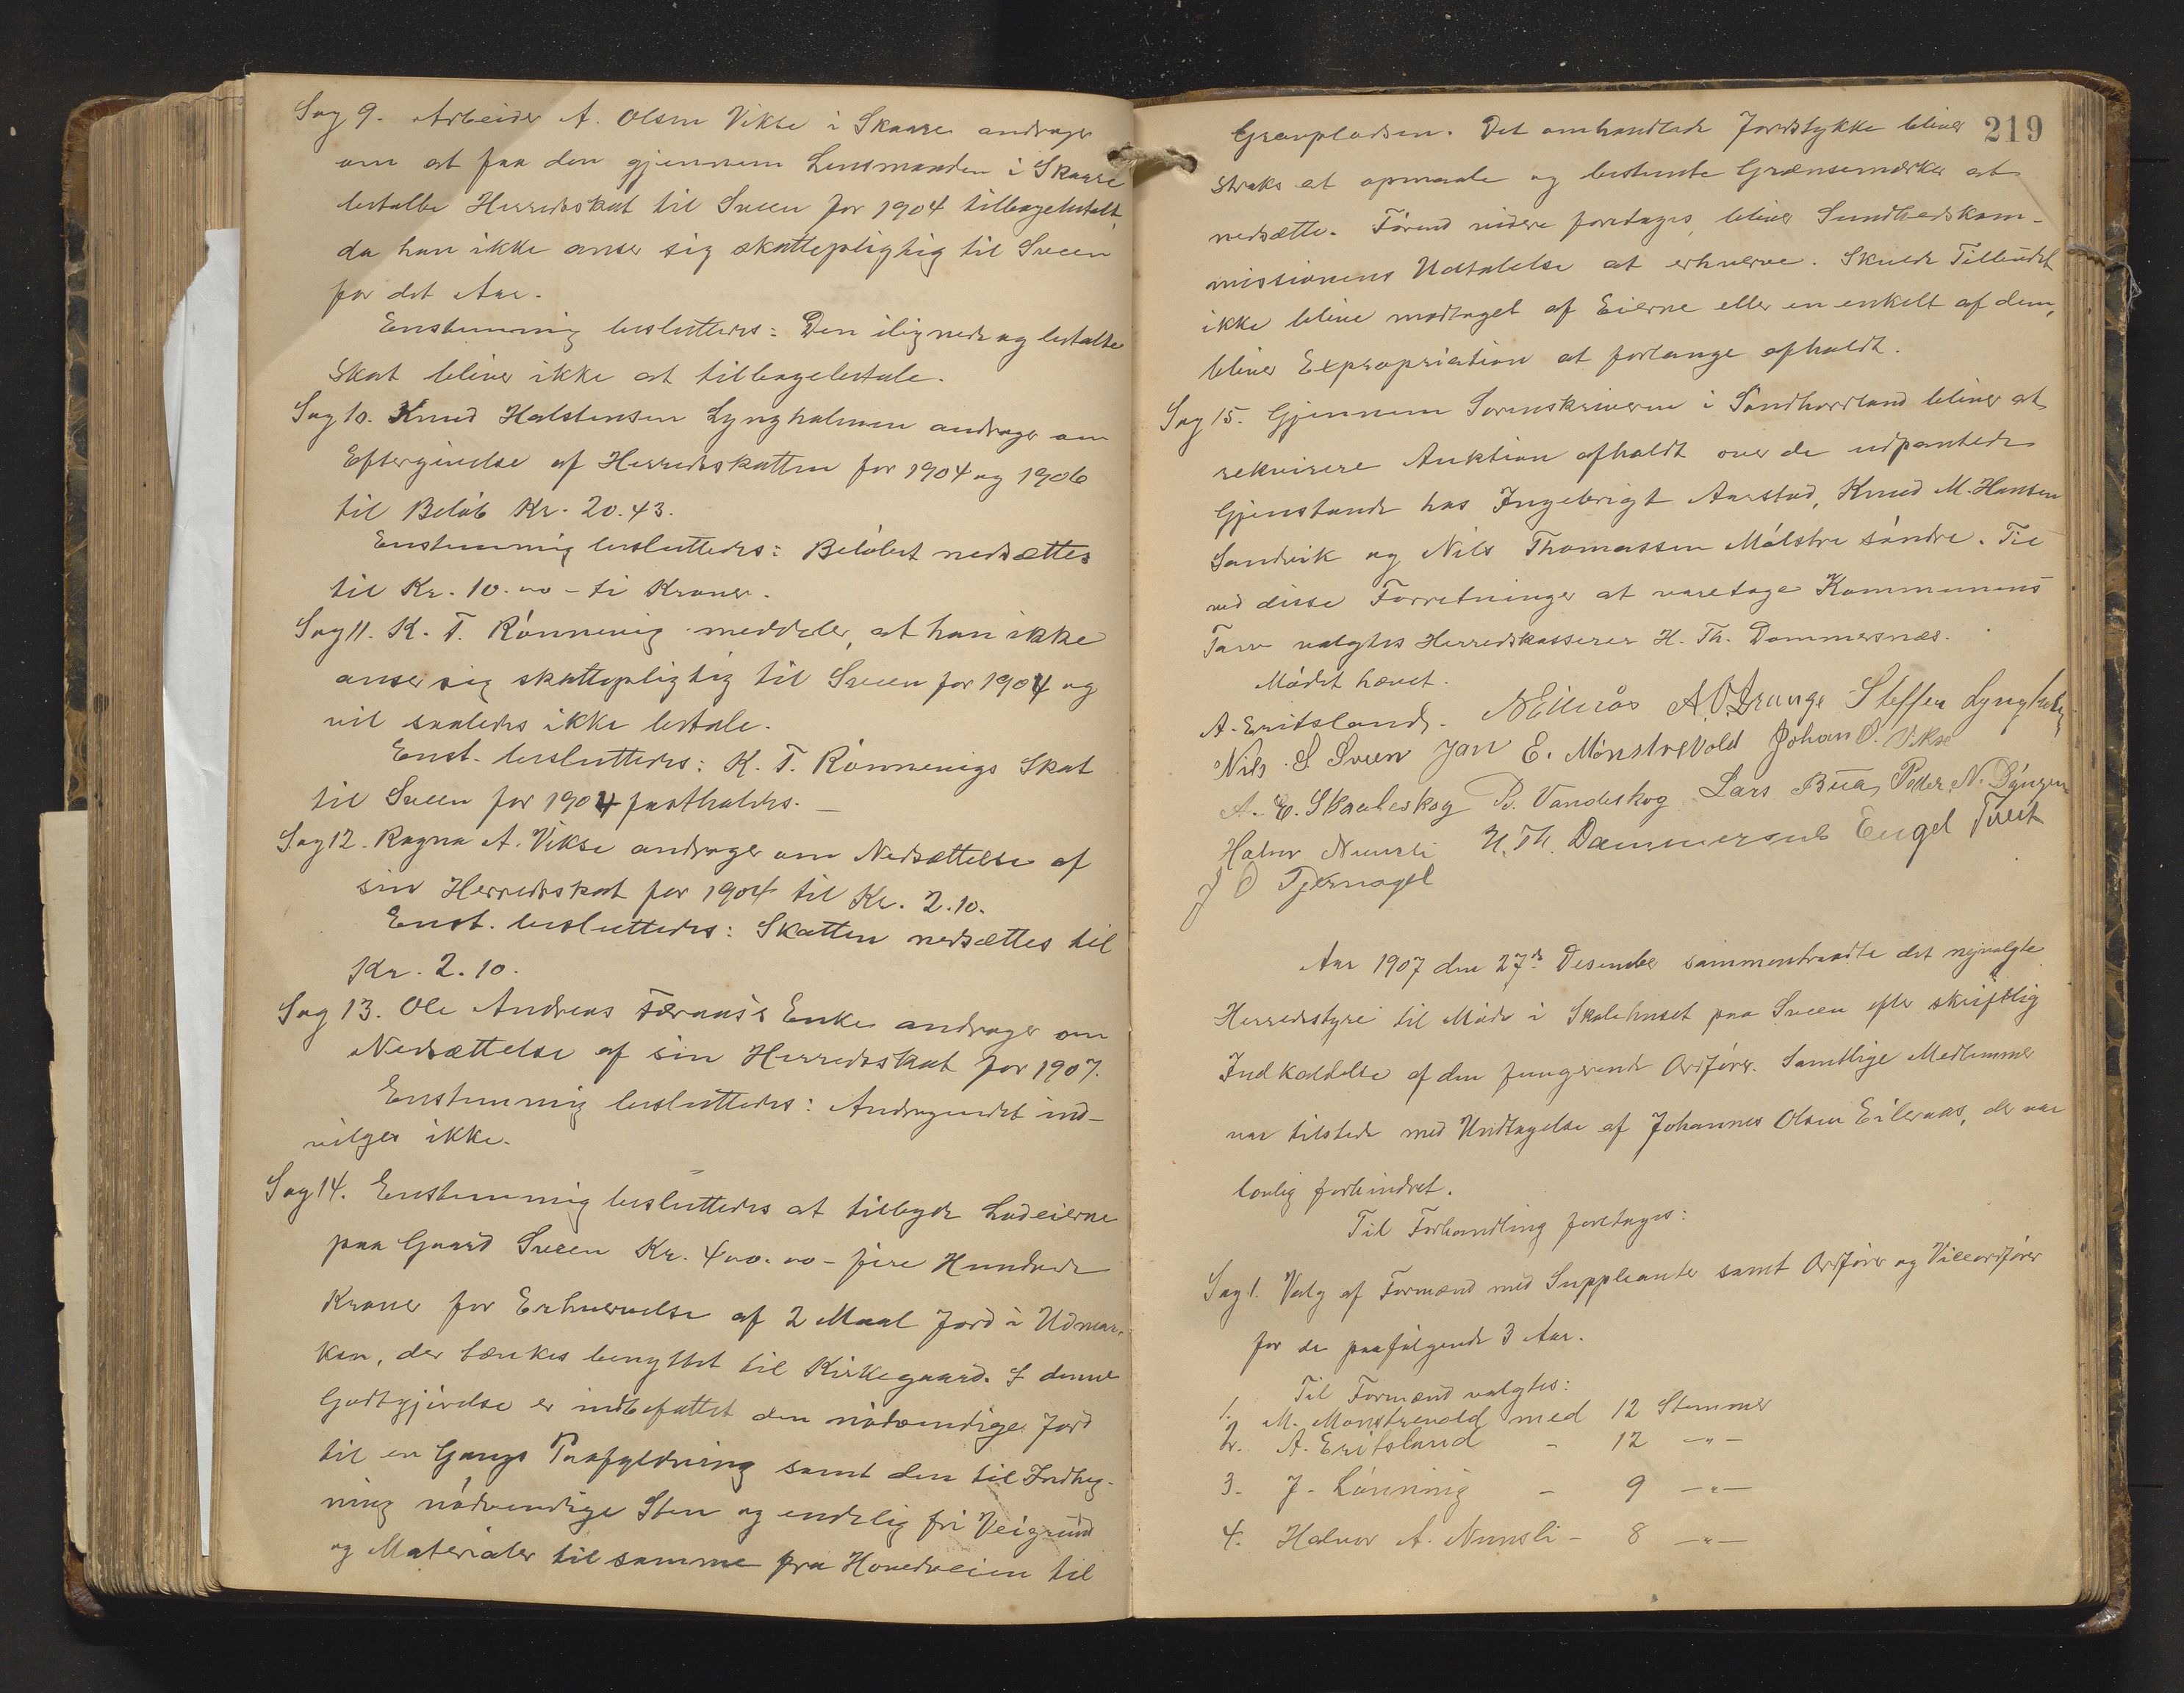 Sag 9. Arbeider A. Olsen Vikse i Skaare andrager
om at faa den gjennem Lensmanden i Skaare
betalte Herredsskat til Sveen for 1904 tilbagebetalt,
da han ikke anser sig skattepligtig til Sveen
for det Aar.
Enstemmig besluttedes: Den ilignede og betalte
Skat bliver ikke at tilbagebetale.
Sag 10. Knud Halstensen Lyngholmen andrager om
Eftergivelse af Herredsskatten for 1904 og 1906
til Beløb Kr. 20.43.
Enstemmig besluttedes: Beløbet nedsættes
til Kr. 10.00 - ti Kroner.
Sag 11. K. T. Rønnevig meddeler, at han ikke
anser sig skattepligtig til Sveen for 1904 og
vil saaledes ikke betale.
Enst. besluttedes: K. T. Rønnevigs Skat
til Sveen for 1904 fastholdes. -
Sag 12. Ragna A. Vikse andrager om Nedsættelse af
sin Herredsskat for 1904 til Kr. 2.10.
Enst. besluttedes: Skatten nedsættes til
Kr. 2.10.
Sag 13. Ole Andreas Færaas's Enke andrager om
Nedsættelse af sin Herredsskat for 1907.
Enstemmig besluttedes: Andragendet ind-
vilges ikke.
Sag 14. Enstemmig besluttedes at tilbyde Lodeierne
paa Gaard Sveen Kr. 400.00 - fire Hundrede
Kroner for Erhvervelse af 2 Maal Jord i Udmar-
ken, der tænkes benyttet til Kirkegaard. I denne
Godtgjørelse er indbefattet den nødvendige Jord
til en Gangs Paafyldning samt den til Indheg-
ning nødvendige Sten og endelig fri Veigrund
og Materialer til samme fra Hovedveien til
219
Gravpladsen. Det omhandlede Jordstykke bliver
straks at opmaale og bestemte Grænsemærker at
nedsætte. Førend videre foretages, bliver Sundhedskom-
missionens Udtalelse at erhverve. Skulde Tilbudet
ikke blive modtaget af Eierne eller en enkelt af dem,
bliver Expropriation at forlange afholdt.
Sag 15. Gjennem Sorenskriveren i Søndhordland bliver at
rekvirere Auktion afholdt over de udpantede
Gjenstande hos Ingebrigt Aarstad, Knud M. Hansen
Sandvik og Nils Thomassen Mølstre søndre. Til
ved disse Forretninger at varetage Kommunens
Tarv valgtes Herredskasserer H. Th. Dommersnæs.
Mødet hævet.
A. Eritsland. N Eileraas A. O. Drange Steffen Lyngholm
Nils S Sveen Jan E. Mønstrevold Johan O. Vikse
A. E. Skaaleskog B. Vandeskog Lars Bua, Peder N. Dyngen
Halvor Nernsli H. Th. Dommersnes Engel Tveit
J O Tjernagel
Aar 1907 den 27de Desember sammentraadte det nyvalgte
Herredsstyre til Møde i Skolehuset paa Sveen efter skriftlig
Indkaldelse af den fungerende Ordfører. Samtlige Medlemmer
var tilstede med Undtagelse af Johannes Olsen Eileraas, der var
lovlig forhindret.
Til Forhandling foretages:
Sag 1. Valg af Formænd med Suppleanter samt Ordfører og Viceordfører
for de paafølgende 3 Aar.
Til Formænd valgtes:
1. M. Mønstrevold med 12 Stemmer
2. A. Eritsland - 12 -"-
3. J. Lønning - 9 -"-
4. Halvor A. Nernsli - 8 -"-